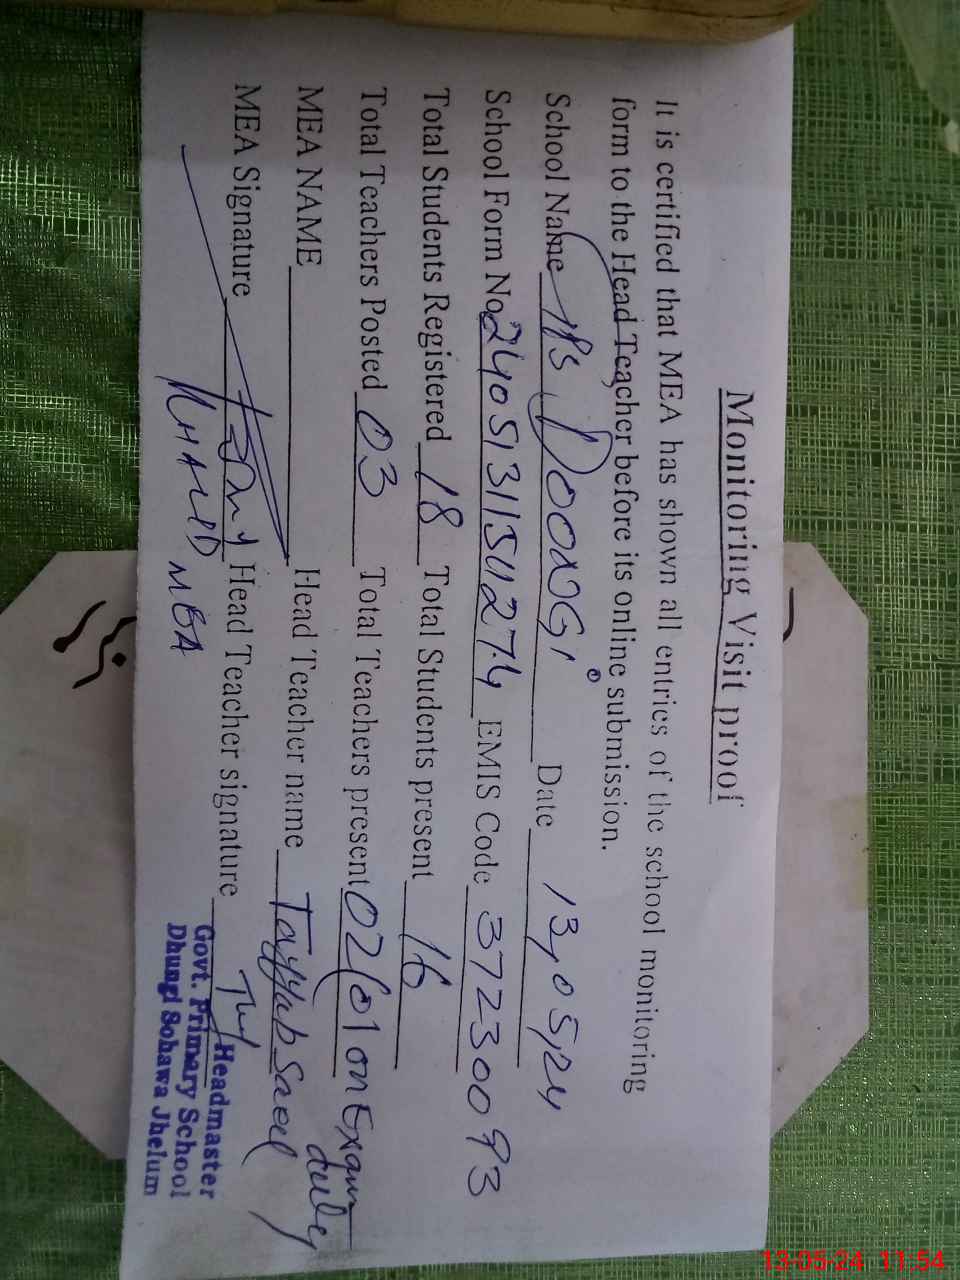 Monitoring Visit proof
It is certified that MEA has shown all entries of the school monitoring
form to the Head Teacher before its online submission.
School Name PS Date 13,05,24
School Form No EMIS Code 37230093
Total Students Registered 18 Total Students present 16
Total Teachers Posted 03 Total Teachers present 02 (01 on Exam
duty
MEA NAME Head Teacher name Tayyab Saeed
MEA Signature Head Teacher signature
KHALID MBA
Headmaster
Govt. Primary School
Dhungi Sohawa Jhelum
13-05-24 11:54